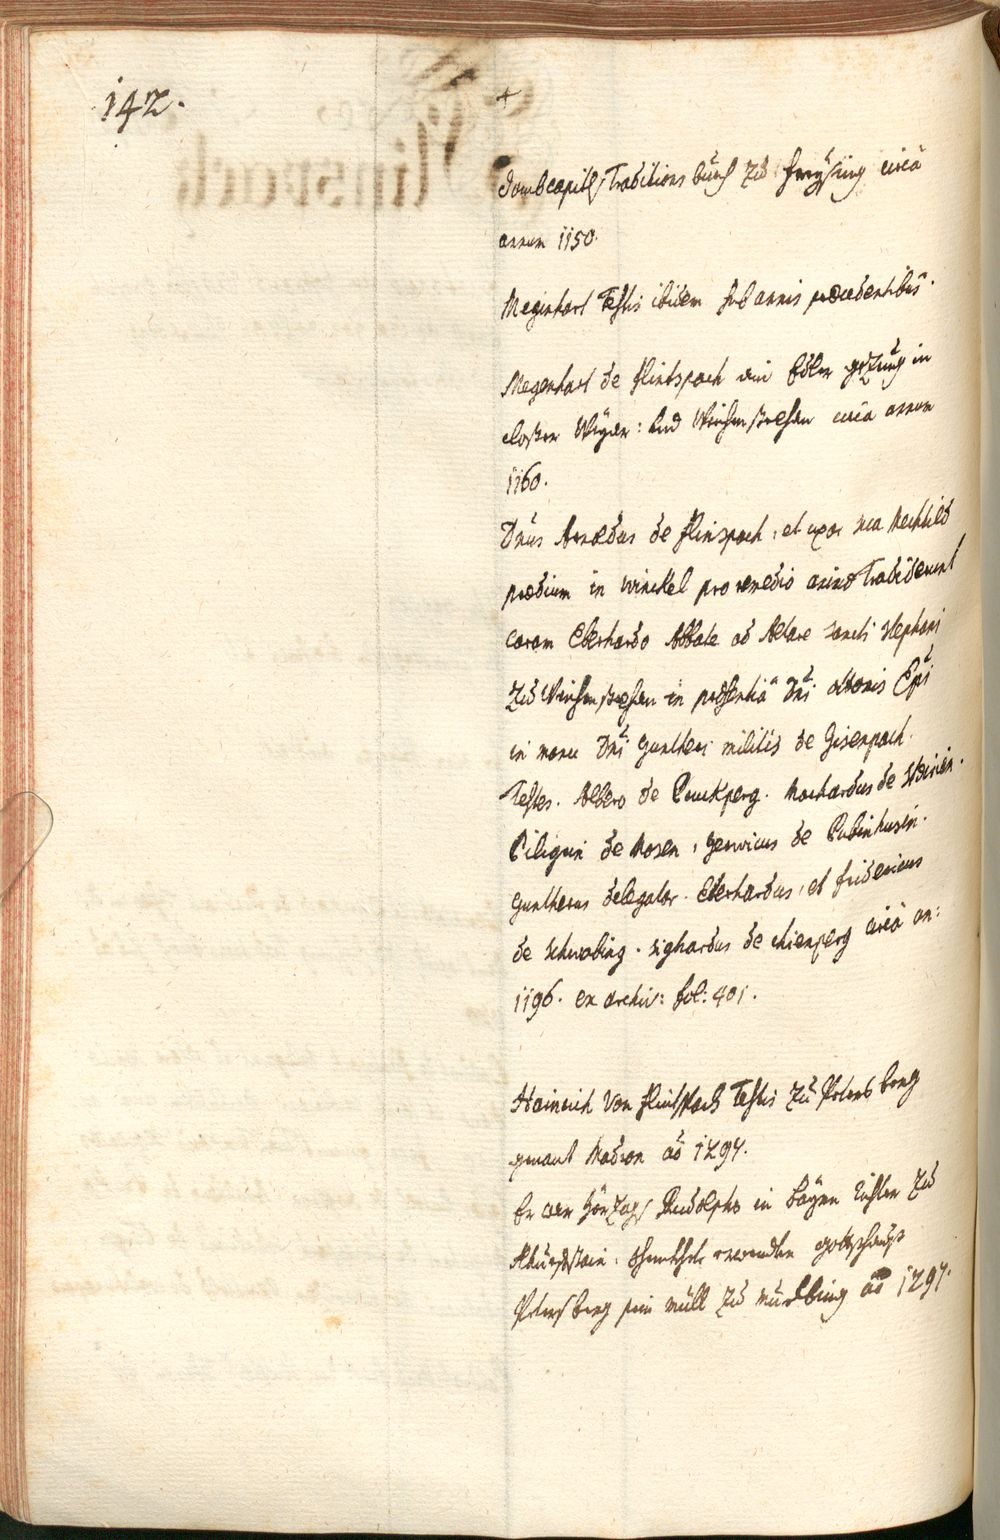 142.
+
Dombcapitls Traditions buech zu Freysing circa
annum 1150.
Meginhart Testis ibidem sub annis praecedentibus.
Megenhart de Flintspach ein Edler gezeug in
closter Weyer: und Weichenstephan circa annum
1160.
Dnus de Flinspach, et uxor sua Mechtild
praedium in Winckel pro remedio animae Tradiderunt
coram Eberhardo Abbate ad Altare sancti Stephani
zu Weichenstephan in praesentia Dni Ottonis Epi
in manu Dni Guntheri militis de Gisenpach.
Testes. Albero de Pruckperg. Marhardus de
Piligrin de Mosen, Gerwicus de Pubinhusin.
Guntherus delegator. Eberhardus, et Fridericus
de Schwabing. Sighardus de Chienperg circa an:
1196. ex archiv: fol: 401.
Hainrich von Flintspach Testis zu Petersberg
genant Madron ao 1297.
Er war Hörzogs Rudolphs in Bayrn Richter zu
schenckhete ermelten gottshauß
Petersberg sein müll zu ao 1297.